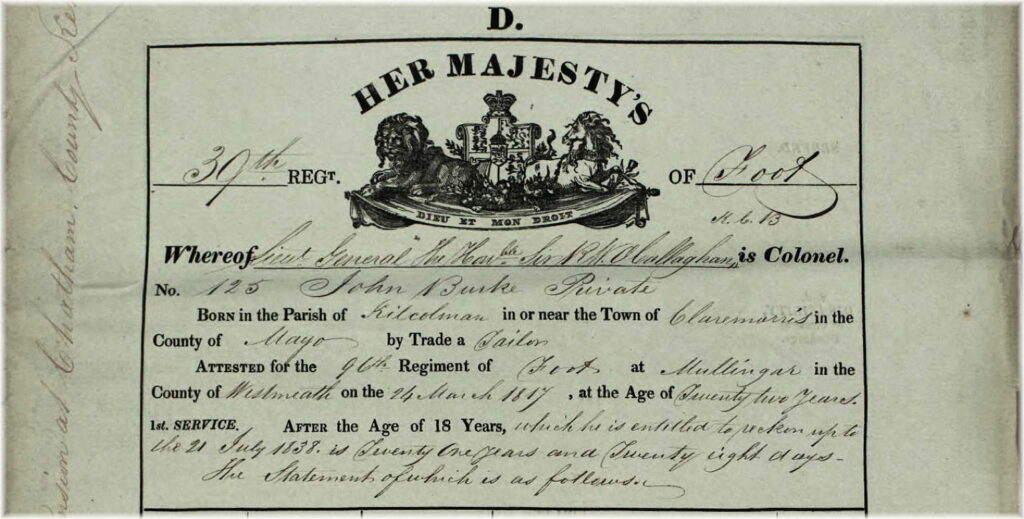 D.
HER MAJESTY'S
39th REGT. OF Foot
DIEU ET MON DROIT
K.C.B
Whereof Lieut. General The Honble Sir R W O'Callaghan is Colonel.
No. 125 John Burke Private
BORN in the Parish of Kilcolman in or near the Town of Claremorris in the
County of Mayo by Trade a Tailor
ATTESTED for the 96th Regiment of Foot at Mullingar in the
County of Westmeath on the 24 March 1817, at the Age of Twenty two Years.
1st. SERVICE. AFTER the Age of 18 Years, which he is entitled to reckon up to
the 21 July 1838. is Twenty One years and Twenty eight days-
the Statement of which is as follows.
Chatham. County